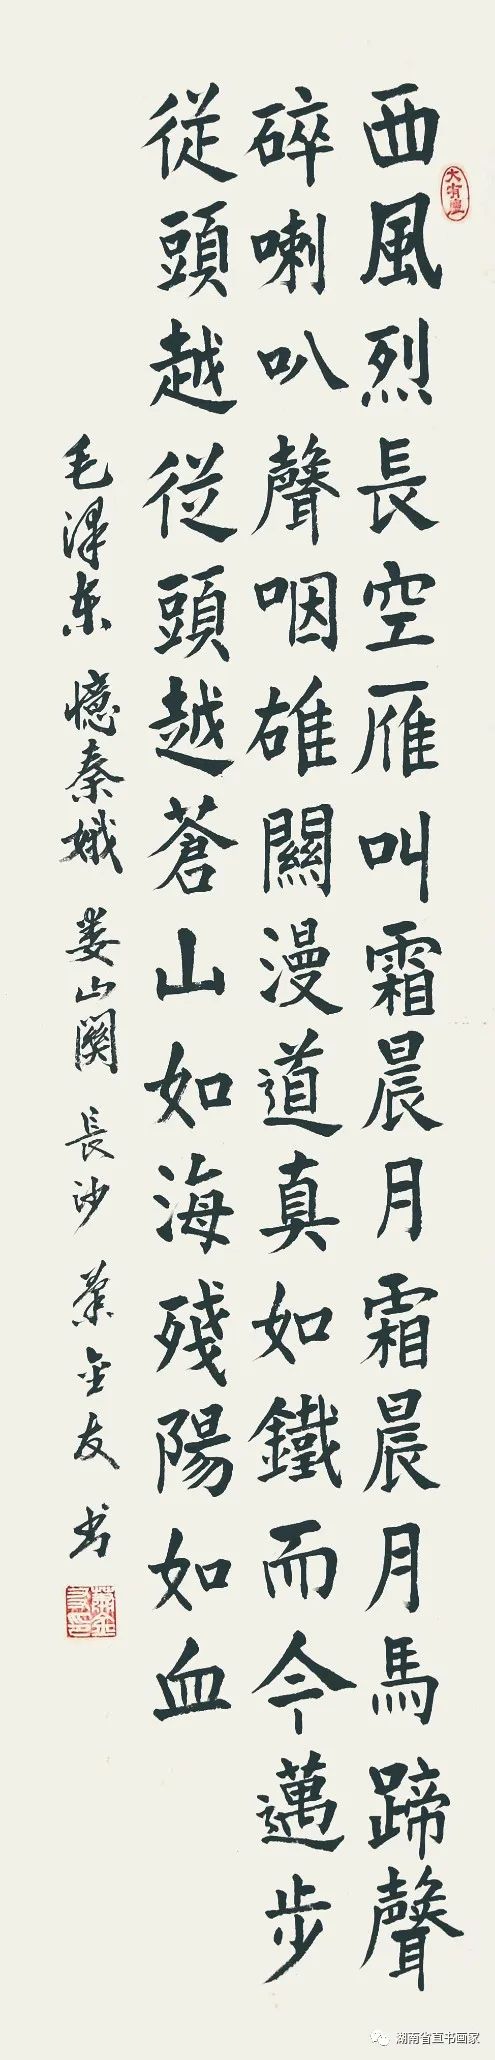 大有廬
西風烈長空雁叫霜晨月霜晨月馬蹄聲
碎喇叭聲咽雄關漫道真如鐵而今邁步
従頭越従頭越蒼山如海殘陽如血
毛澤东 憶秦娥 娄山関 長沙 葉金友 书
湖南省直书画家